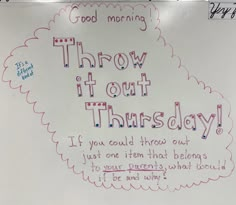 Good morning
Yay F
It's a
different
pen!
Throw
it out
Thursday!
If you could throw out
just one item that belongs
to your parents, what would
it be and why?